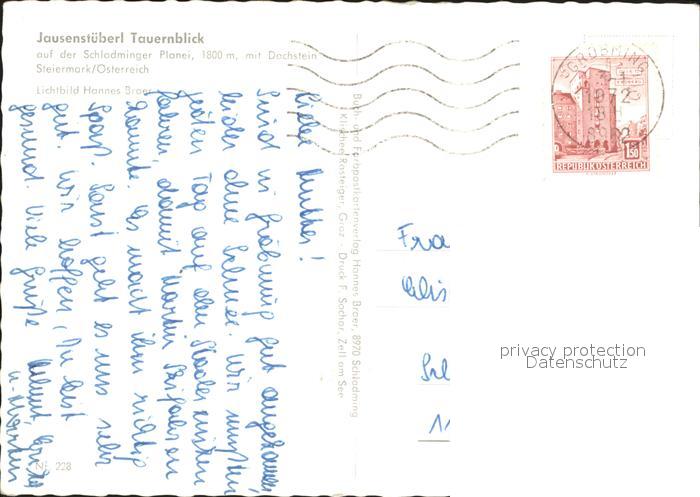 Jausenstüberl Tauernblick
auf der Schladminger Planei, 1800 m, mit Dachstein
Steiermark/Österreich
Lichtbild Hannes Braer
Liebe Mutter!
Sind in Gröbming gut angekommen
leider ohne Schnee. Wir mußten
jeden Tag auf den
fahren, damit Martin Skifahren
konnte. Es macht ihm richtig
Spaß. Sonst geht es uns sehr
gut. Wir hoffen, Du bist
gesund. Viele Grüße
Helmut,
u. Martin
Buch- und Farbpostkartenverlag Hannes Braer, 8970 Schladming
Klischee Rosteiger, Graz - Druck F. Sochor, Zell am See
GRÖBMING
1972
1.50
REPUBLIK ÖSTERREICH
Fra
privacy protection
Datenschutz
Nr. 228